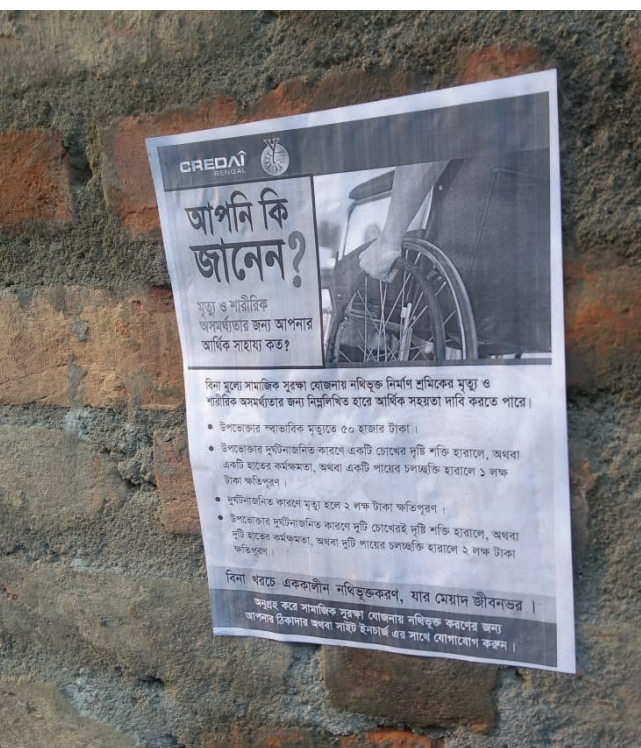 CREDAI
BENGAL
আপনি কি
জানেন?
মৃত্যু ও শারীরিক
অসমর্থ্যতার জন্য আপনার
আর্থিক সাহায্য কত?
বিনা মূল্যে সামাজিক সুরক্ষা যোজনায় নথিভূক্ত নির্মাণ শ্রমিকের মৃত্যু ও
শারীরিক অসমর্থ্যতার জন্য নিম্নলিখিত হারে আর্থিক সহায়তা দাবি করতে পারে।
• উপভোক্তার স্বাভাবিক মৃত্যুতে ৫০ হাজার টাকা।
• উপভোক্তার দুর্ঘটনাজনিত কারণে একটি চোখের দৃষ্টি শক্তি হারালে, অথবা
একটি হাতের কর্মক্ষমতা, অথবা একটি পায়ের চলচ্ছক্তি হারালে ১ লক্ষ
টাকা ক্ষতিপূরণ।
• দুর্ঘটনাজনিত কারণে মৃত্যু হলে ২ লক্ষ টাকা ক্ষতিপূরণ।
• উপভোক্তার দুর্ঘটনাজনিত কারণে দুটি চোখেরই দৃষ্টি শক্তি হারালে, অথবা
দুটি হাতের কর্মক্ষমতা, অথবা দুটি পায়ের চলচ্ছক্তি হারালে ২ লক্ষ টাকা
ক্ষতিপূরণ।
বিনা খরচে এককালীন নথিভূক্তকরণ, যার মেয়াদ জীবনভর।
অনুগ্রহ করে সামাজিক সুরক্ষা যোজনায় নথিভূক্ত করণের জন্য
আপনার ঠিকাদার অথবা সাইট ইনচার্জ এর সাথে যোগাযোগ করুন।